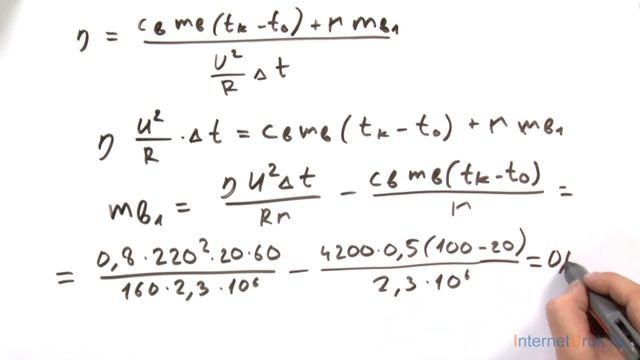 η = (c_в m_в (t_к – t_0) + r m_в1) / (U²/R Δt)
η U²/R · Δt = c_в m_в (t_к – t_0) + r m_в1
m_в1 = η U² Δt / Rr – c_в m_в (t_к – t_0) / r =
= 0,8 · 220² · 20 · 60 / 160 · 2,3 · 10⁶ – 4200 · 0,5 (100 – 20) / 2,3 · 10⁶ = 0,